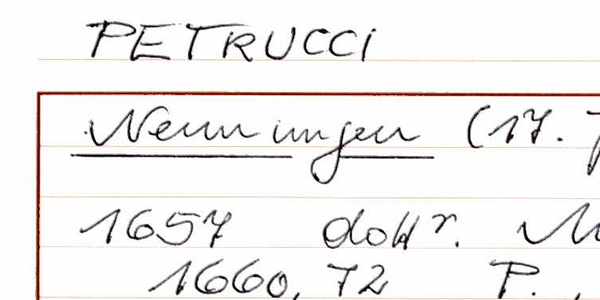 PETRUCCI
Nennungen (17.
1657 dokr.
1660, 72 P.,